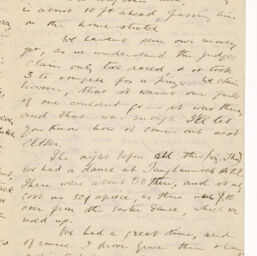 is about 10 ft ahead, passing him
on the home stretch
We haven't seen our money
yet, as we understand the judges
claim only two raced, & it took
3 to compete for a prize. We claim
however, that it wasn't our fault
if one couldn't go — it was there
and that was enough. I'll let
you know how it comes out next
letter.
The night before all the
we had a dance at
There were about 50 there, and it only
cost us 50¢ apiece, as there was $10
over from the Easter dance, which we
used up.
We had a great time, and
of course I drove Grace there & home